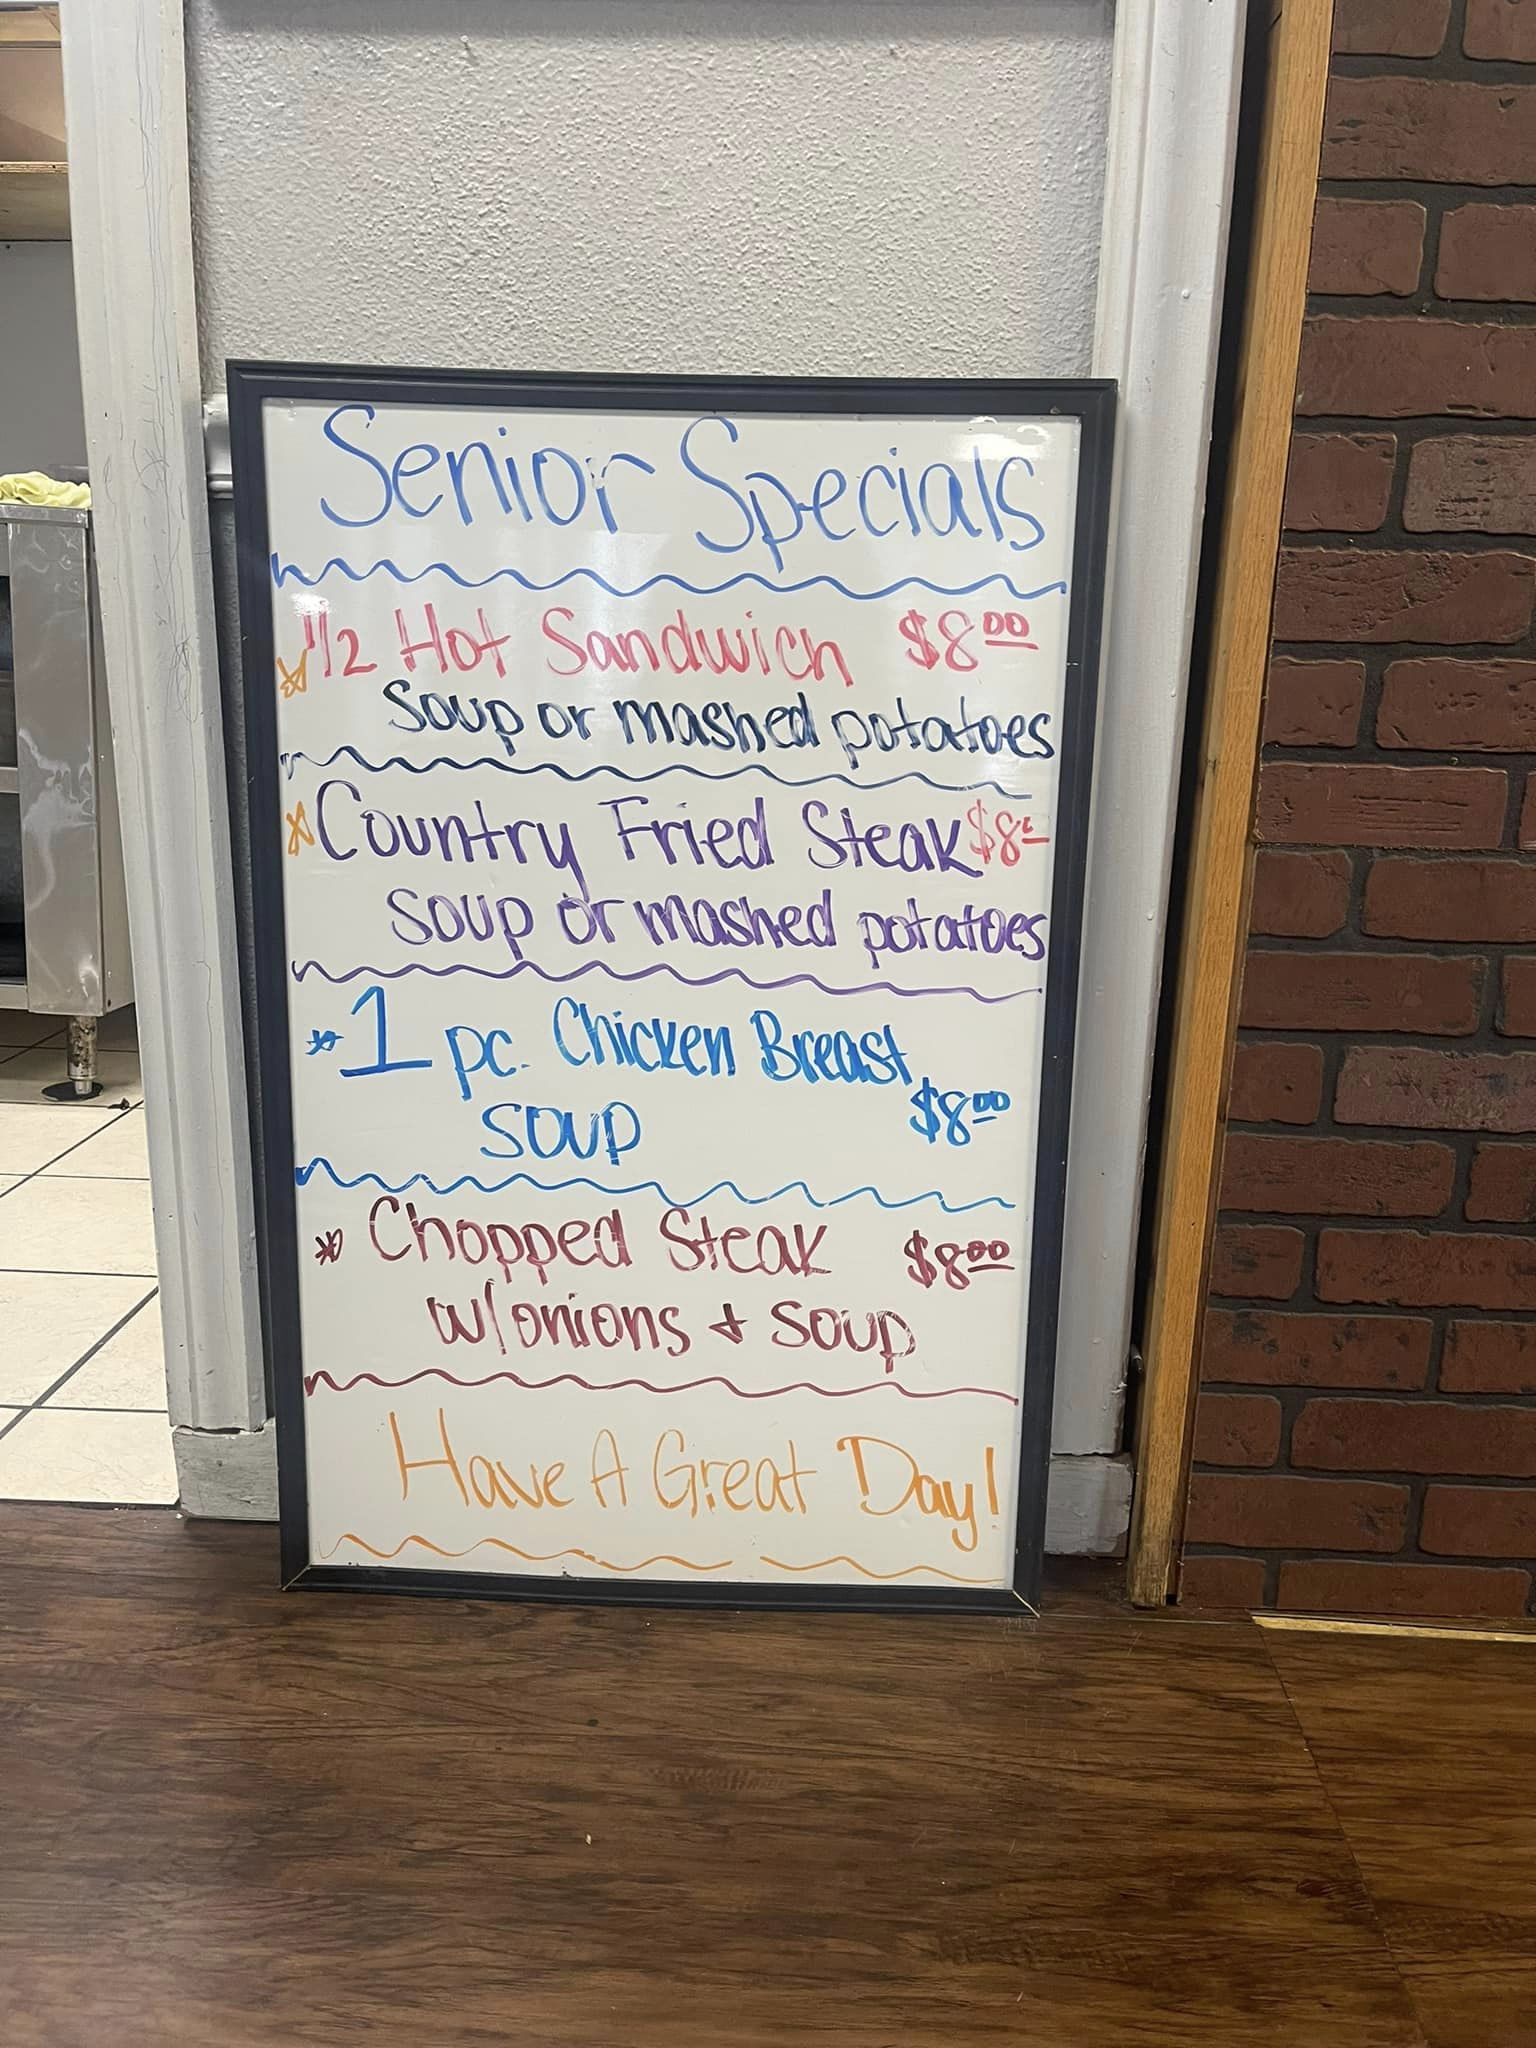 Senior Specials
1/2 Hot Sandwich $8.00
Soup or mashed potatoes
Country Fried Steak $8
Soup or mashed potatoes
1 pc. Chicken Breast
$8.00
soup
Chopped Steak $8.00
w/onions + soup
Have A Great Day!